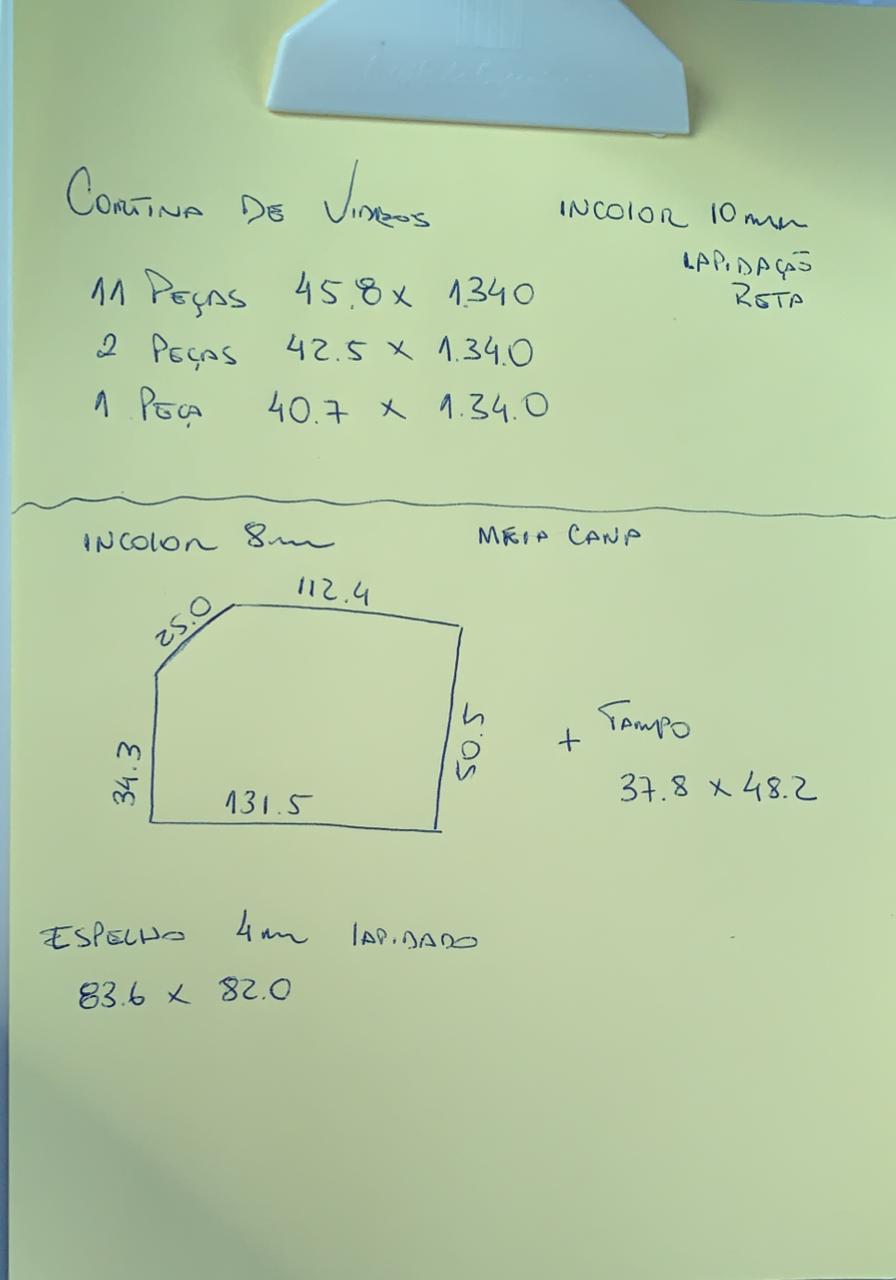 CORTINA DE VIDROS
INCOLOR 10mm
LAPIDAÇÃO
RETA
11 PEÇAS 45.8 x 1.340
2 PEÇAS 42.5 x 1.34.0
1 PEÇA 40.7 x 1.34.0
INCOLOR 8mm
MEIA CANA
25.0
112.4
34.3
131.5
50.5
+ TAMPO
37.8 x 48.2
ESPELHO 4mm LAPIDADO
83.6 x 82.0